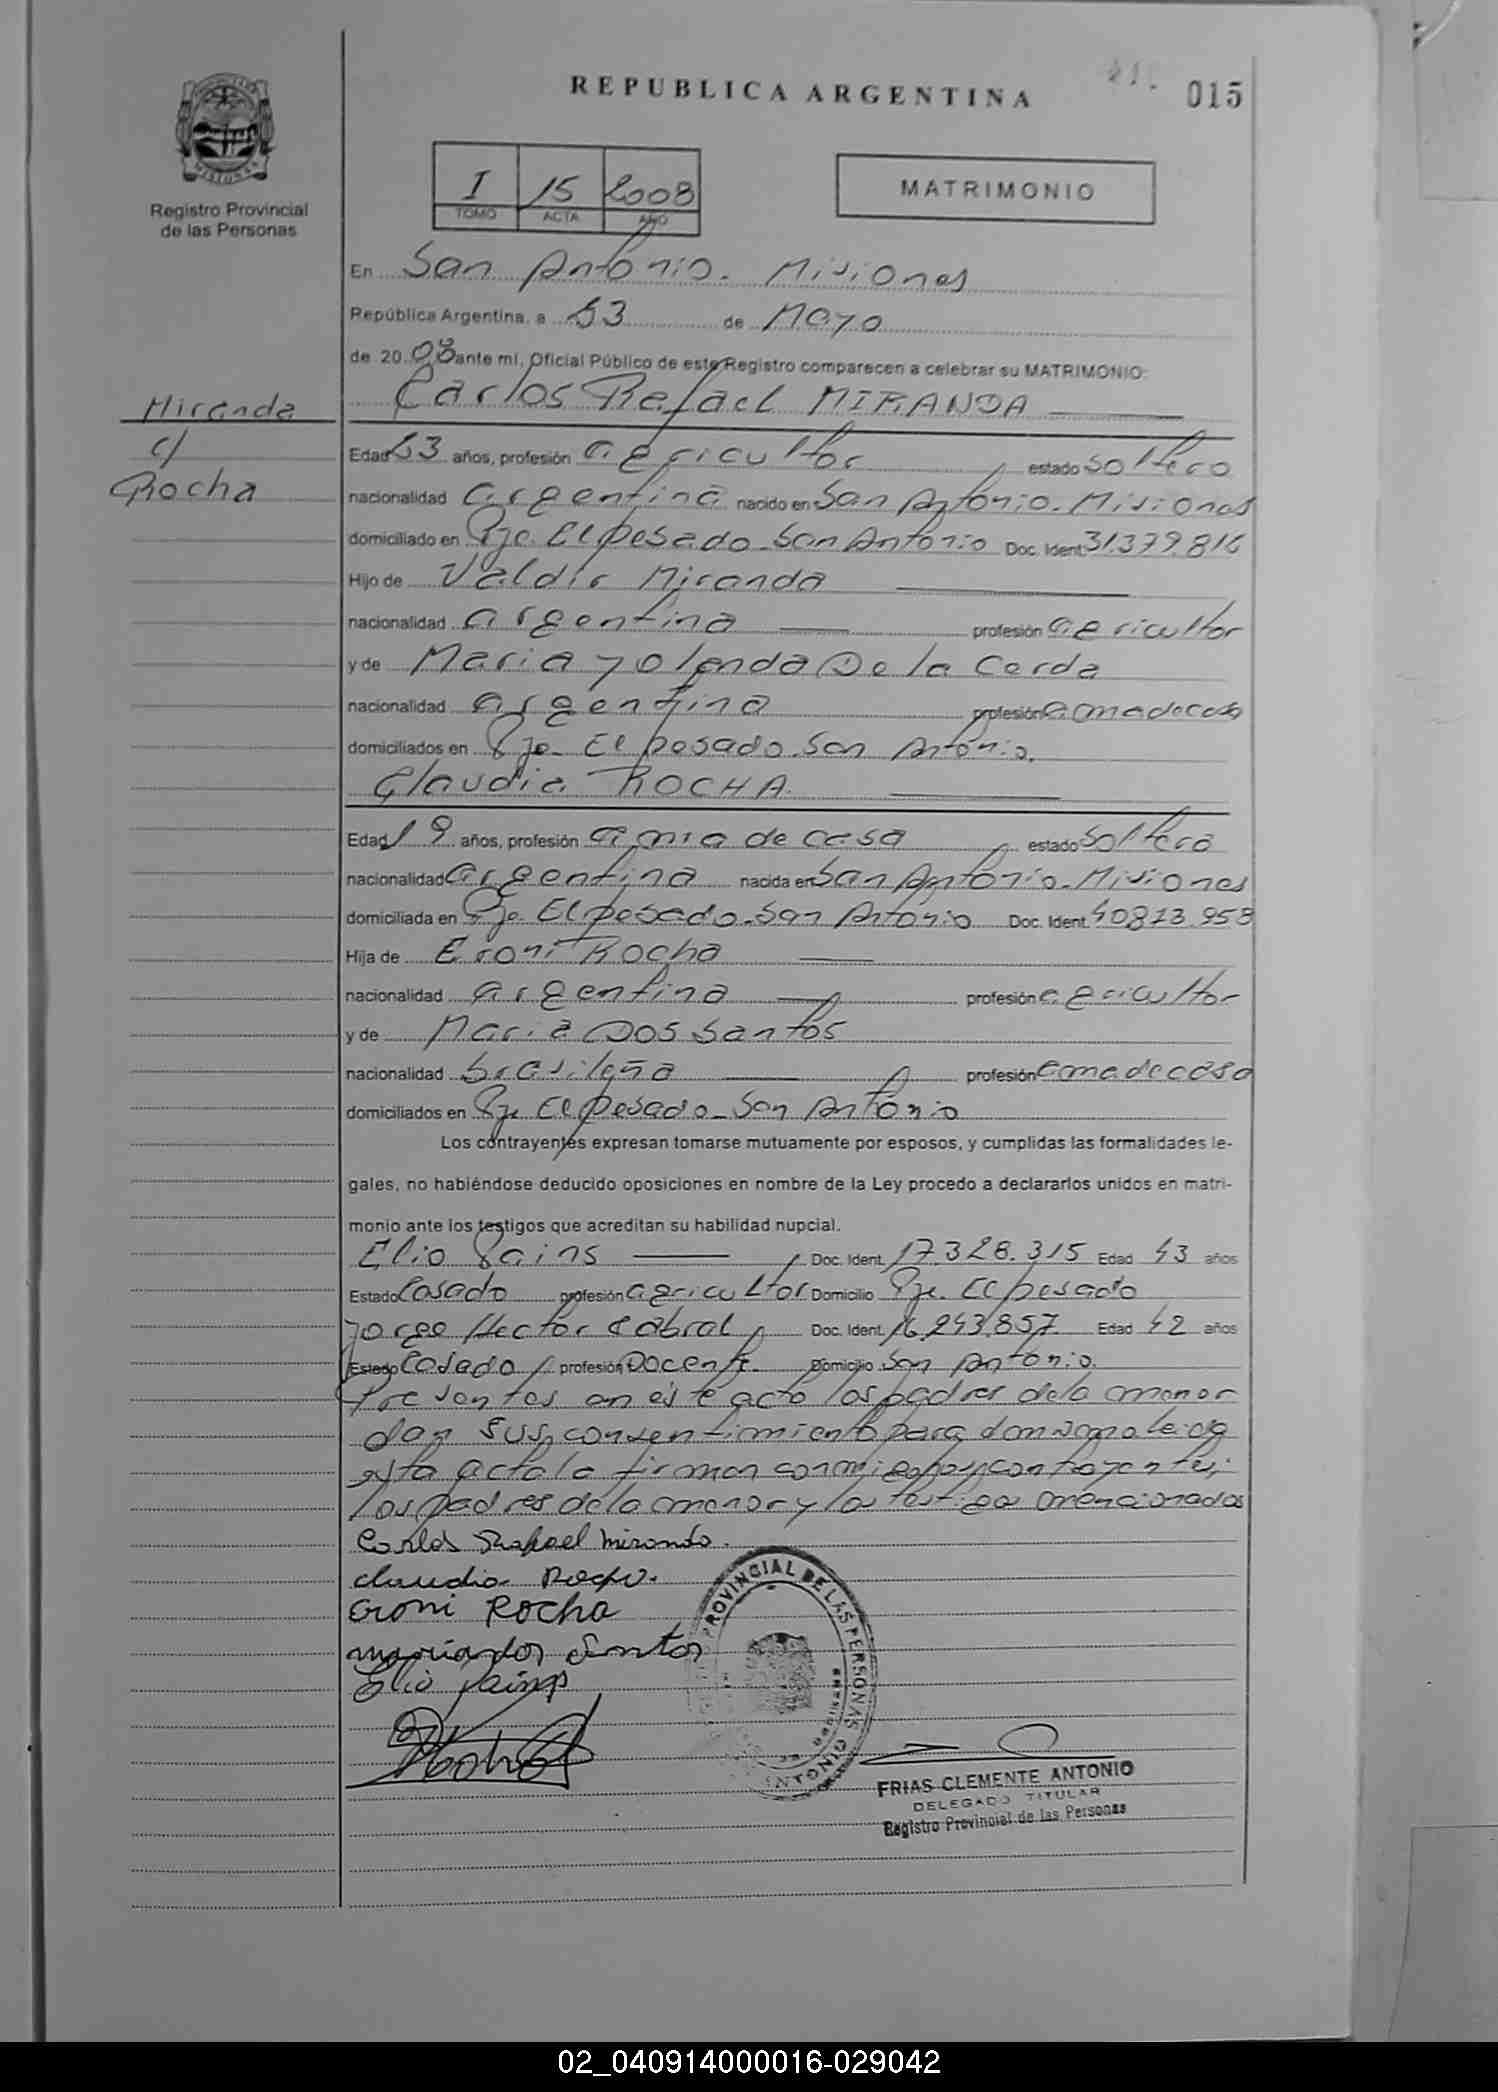 REPUBLICA ARGENTINA
015
I 15 2008
TOMO ACTA AÑO
MATRIMONIO
Registro Provincial
de las Personas
En San Antonio. Misiones
República Argentina, a 23 de Mayo
de 20 08 ante mí, Oficial Público de este Registro comparecen a celebrar su MATRIMONIO:
Carlos Rafael MIRANDA
Miranda
c/
Rocha
Edad 23 años, profesión agricultor estado soltero
nacionalidad argentina nacido en San Antonio. Misiones
domiciliado en Pje. El pesado San Antonio Doc. Ident. 31.379.816
Hijo de Valdir Miranda
nacionalidad argentina profesión agricultor
y de Maria Yolenda De la Cerda
nacionalidad argentina profesión ama de casa
domiciliados en Pje. El pesado San Antonio.
Claudia ROCHA
Edad 19 años, profesión ama de casa estado soltera
nacionalidad argentina nacida en San Antonio. Misiones
domiciliada en Pje. El pesado San Antonio Doc. Ident. 40873.958
Hija de Eroni Rocha
nacionalidad argentina profesión agricultor
y de Maria Dos Santos
nacionalidad brasileña profesión ama de casa
domiciliados en Pje El pesado San Antonio
Los contrayentes expresan tomarse mutuamente por esposos, y cumplidas las formalidades le-
gales, no habiéndose deducido oposiciones en nombre de la Ley procedo a declararlos unidos en matri-
monio ante los testigos que acreditan su habilidad nupcial.
Elio Pains Doc. Ident. 17.328.315 Edad 43 años
Estado Casado profesión agricultor Domicilio Pje. El pesado
Jorge Hector Cabral Doc. Ident. 16.243.857 Edad 42 años
Estado Casado profesión Docente. Domicilio San Antonio.
Presentes en este acto los padres de la menor
dan sus consentimiento para leida
esta acta la firman conmigo los contrayentes,
los padres de la menor y los testigos mencionados
Carlos Rafael Miranda.
Claudia Rocha.
Eroni Rocha
maria dos Santos
Elio Pains
PROVINCIAL DE LAS PERSONAS
ANTONIO
FRIAS CLEMENTE ANTONIO
DELEGADO TITULAR
Registro Provincial de las Personas
02_040914000016-029042